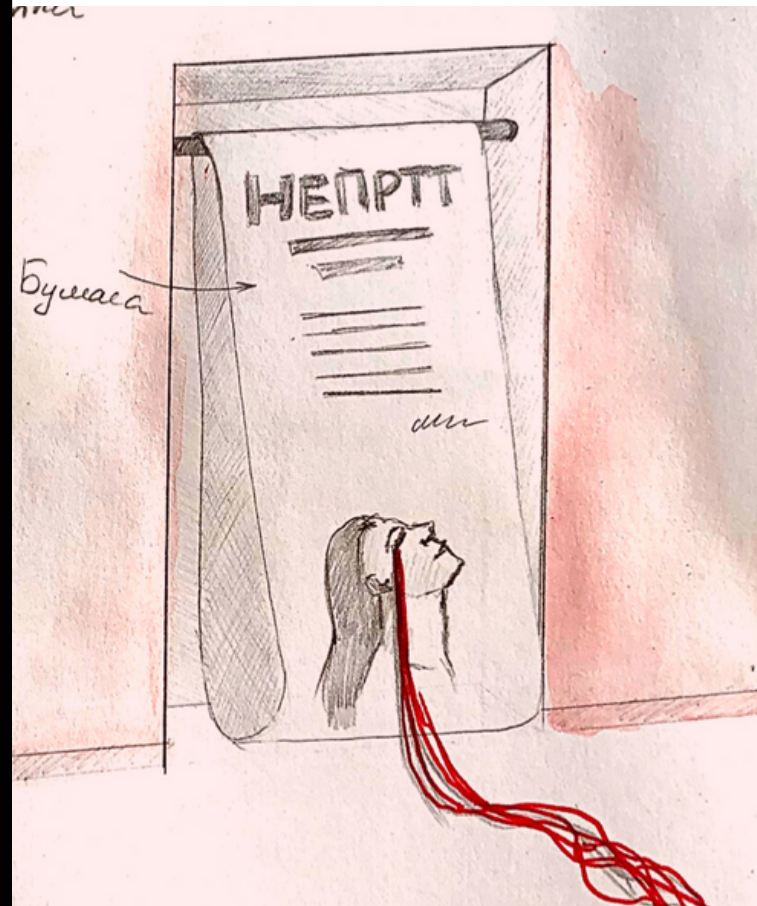 НЕПРТТ
Бумага